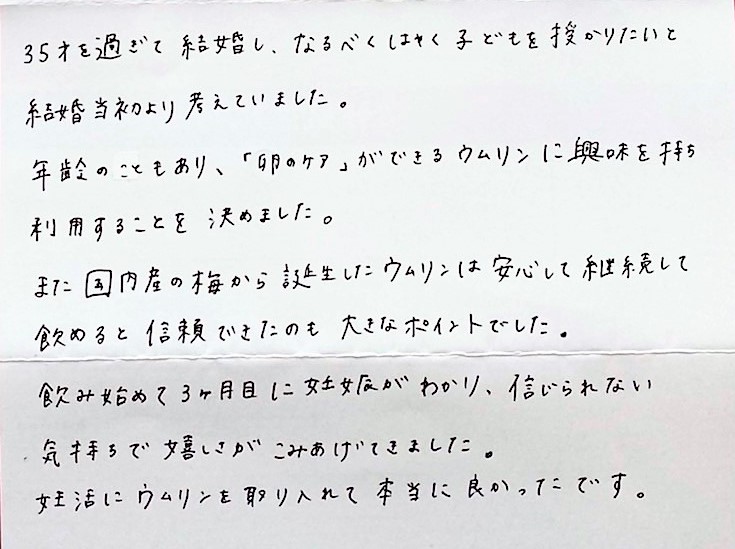 35才を過ぎて結婚し、なるべくはやく子どもを授かりたいと
結婚当初より考えていました。
年齢のこともあり、「卵のケア」ができるウムリンに興味を持ち
利用することを決めました。
また国内産の梅から誕生したウムリンは安心して継続して
飲めると信頼できたのも大きなポイントでした。
飲み始めて3ヶ月目に妊娠がわかり、信じられない
気持ちで嬉しさがこみあげてきました。
妊活にウムリンを取り入れて本当に良かったです。